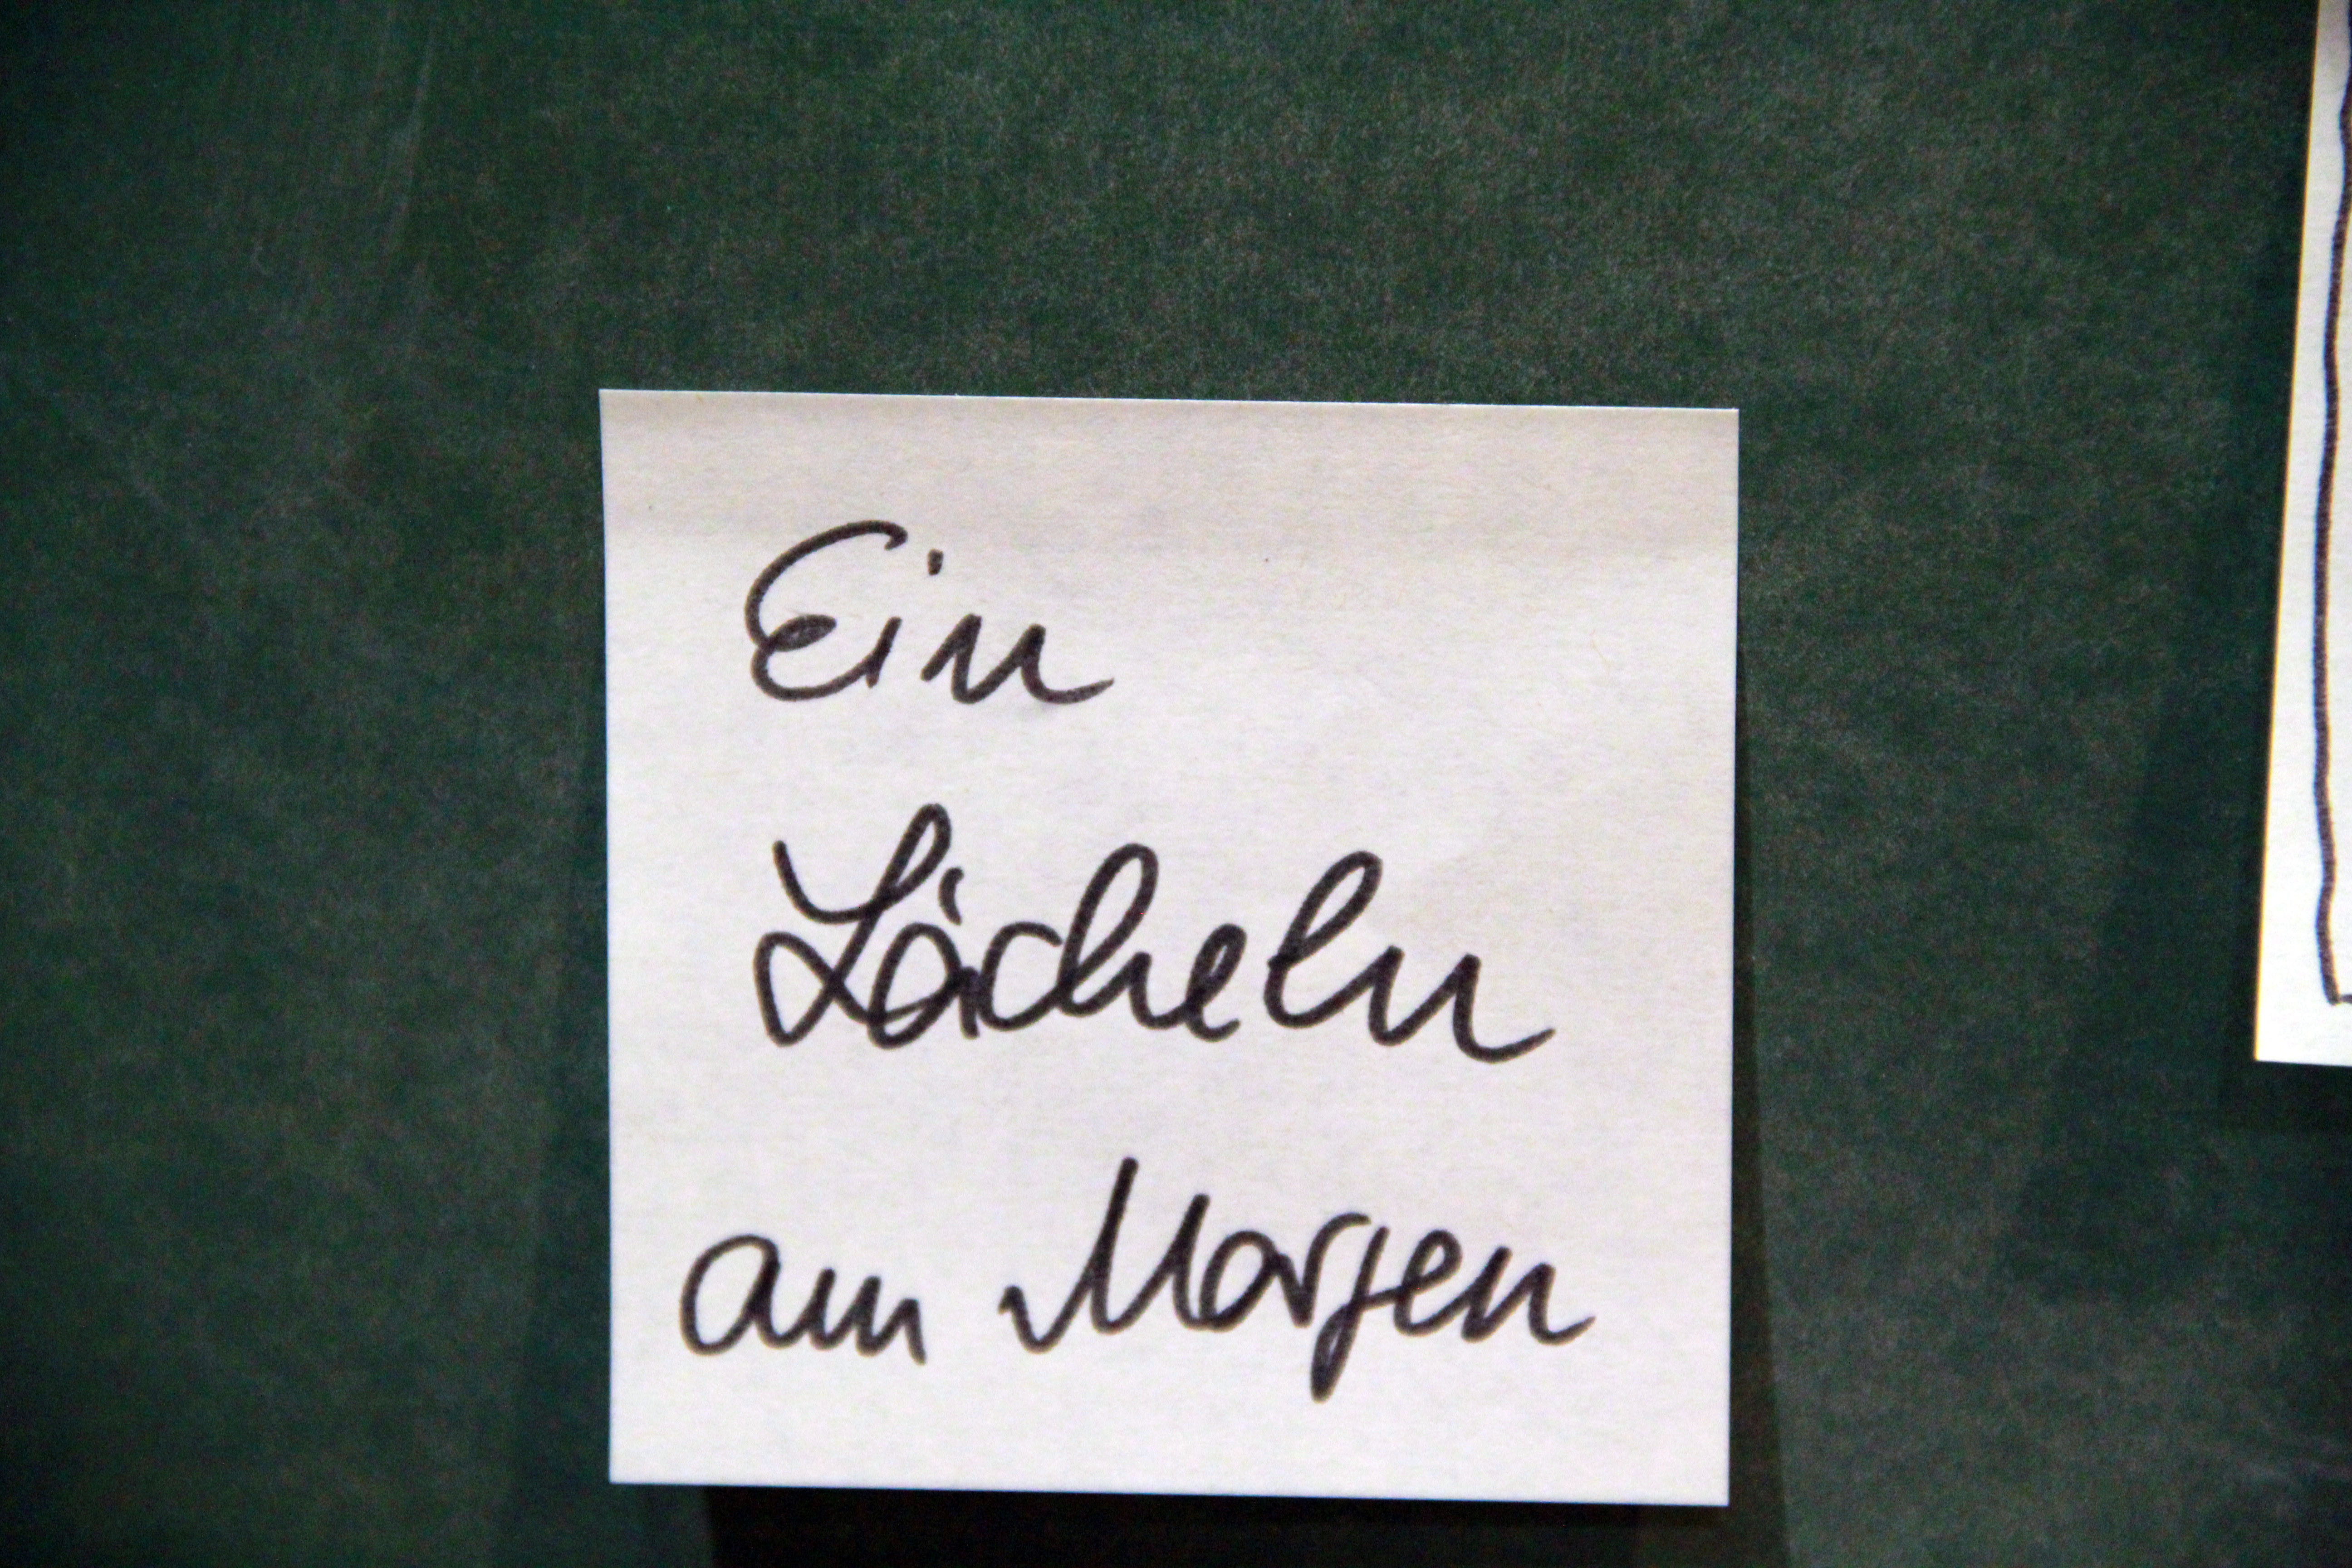 Ein
Lächeln
am Morgen